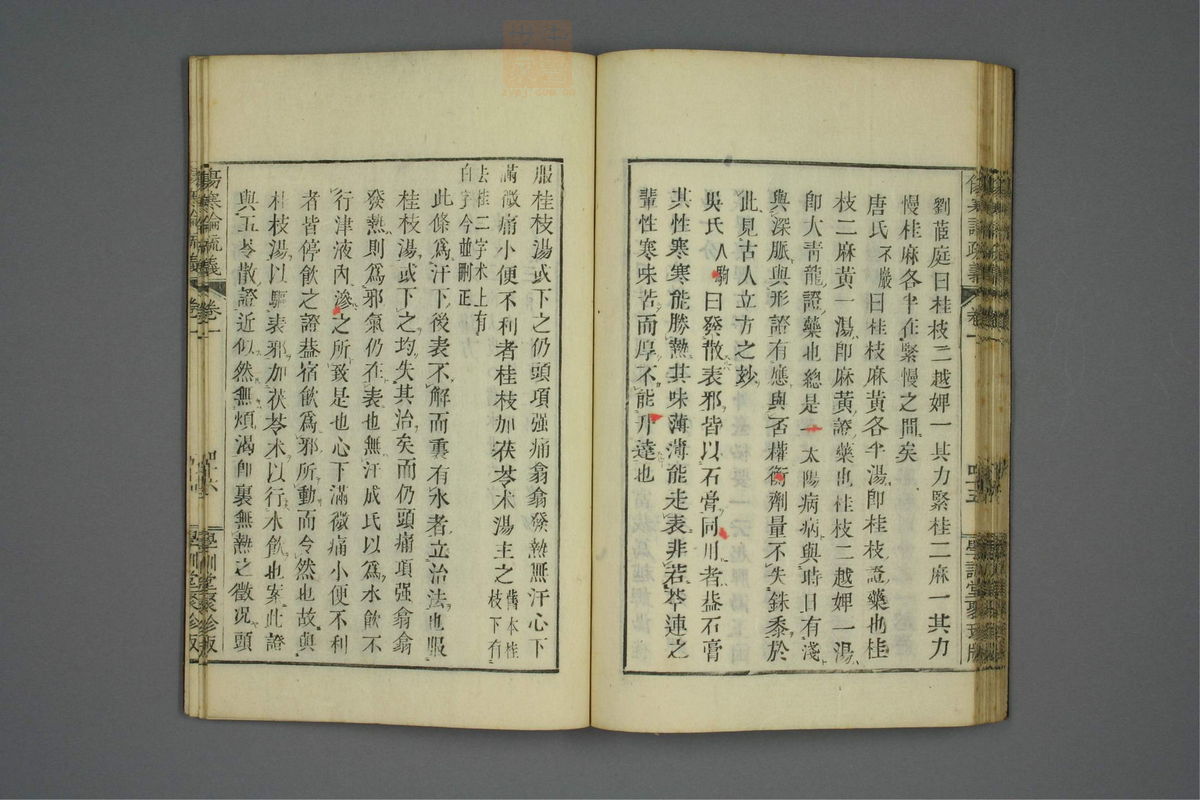 劉茝庭曰桂枝二越婢一其力緊桂二麻一其力
慢桂麻各半在緊慢之間矣
唐氏不巖曰桂枝麻黃各半湯卽桂枝證藥也桂
枝二麻黃一湯卽麻黃證藥也桂枝二越婢一湯
卽大靑龍證藥也總是一太陽病病與時日有淺
與深脈與形證有應與否權衡劑量不失銖黍於
此見古人立方之玅
吳氏人駒曰發散表邪皆以石膏同用者葢石膏
其性寒寒能勝熱其味薄薄能走表非若芩連之
輩性寒味苦而厚不能升達也
服桂枝湯或下之仍頭項强痛翕翕發熱無汗心下
滿微痛小便不利者桂枝加茯苓朮湯主之舊本桂枝下有
去桂二字朮上有白字今並刪正
此條爲汗下後表不解而裏有水者立治法也服
桂枝湯或下之均失其治矣而仍頭痛項强翕翕
發熱則爲邪氣仍在表也無汗成氏以爲水飮不
行津液內滲之所致是也心下滿微痛小便不利
者皆停飮之證葢宿飮爲邪所動而令然也故與
桂枝湯以驅表邪加茯苓朮以行水飮也案此證
與五苓散證近似然無煩渴卽裏無熱之徵况頭
傷寒論疏義
卷一
學訓堂聚珍版